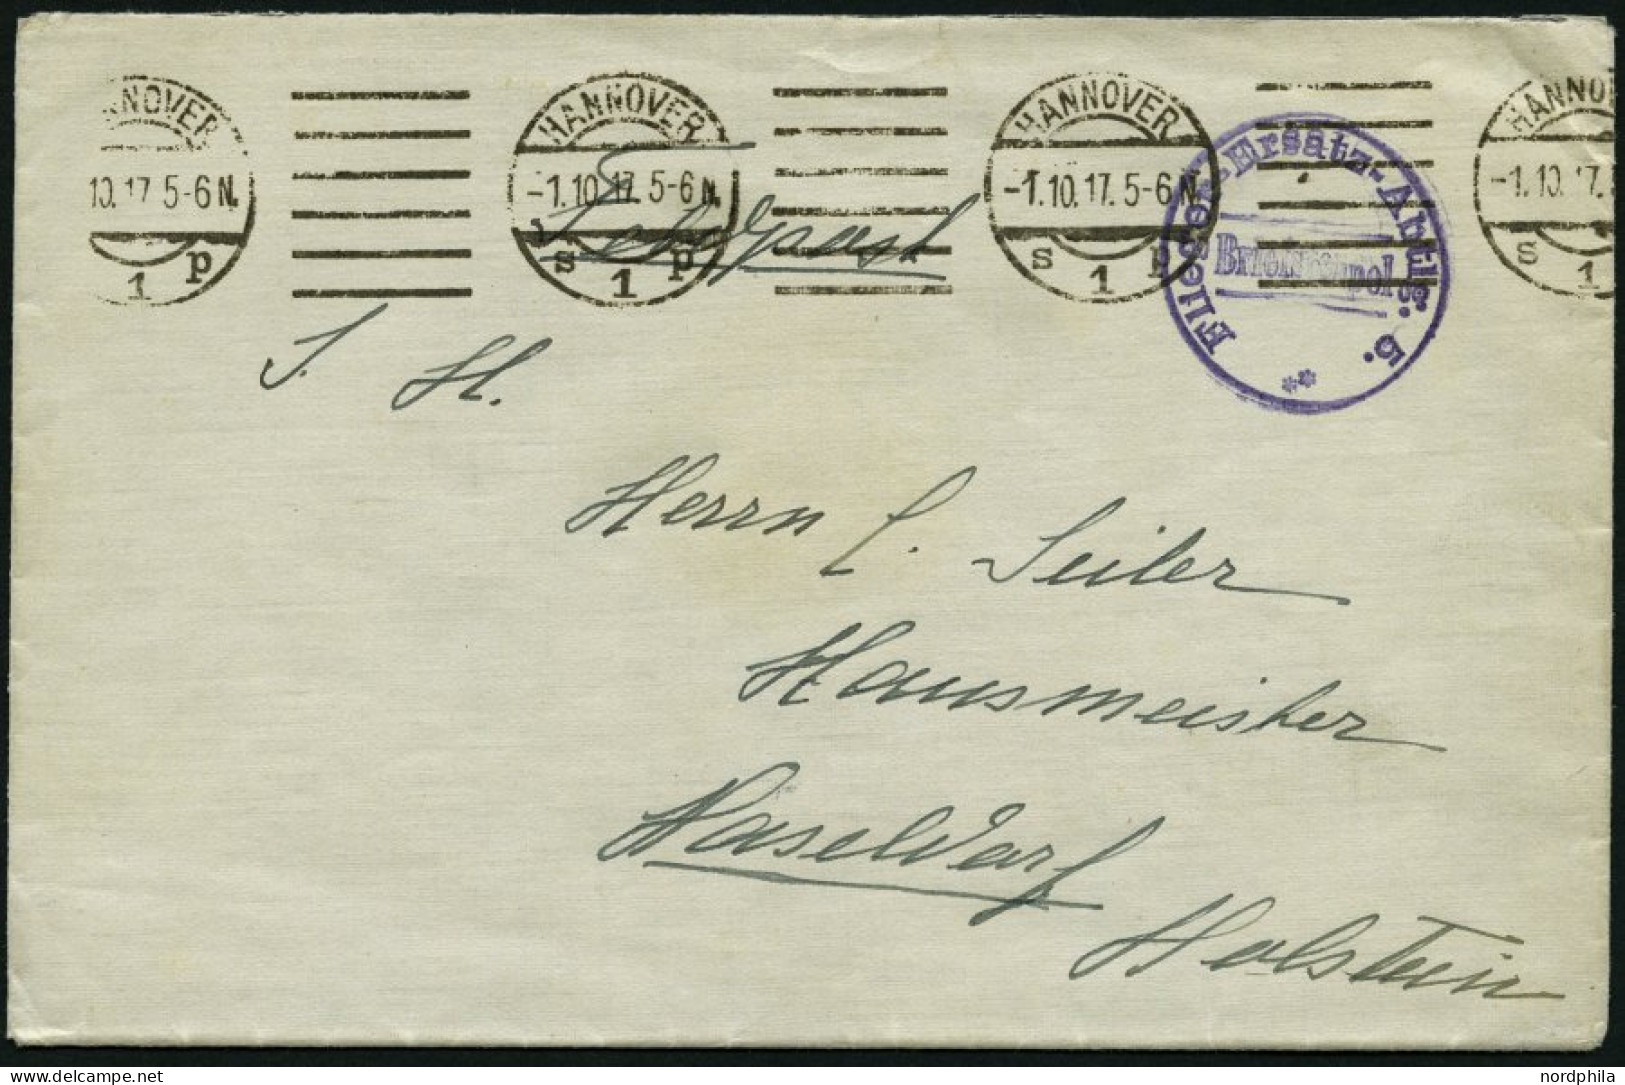 HANNOVER HANNOVER HANNOVER
10.17. 5-6 N. -1.10.17. 5-6 N. -1.10.17. 5-6 N. -1.10.17.
1 p s 1 p s 1 p s 1
Feldpost
Flieger-Ersatz-Abtlg. 5.
Briefstempel
**
S. H.
Herrn C. Seiler
Hausmeister
Haseldorf
Holstein
nordphila